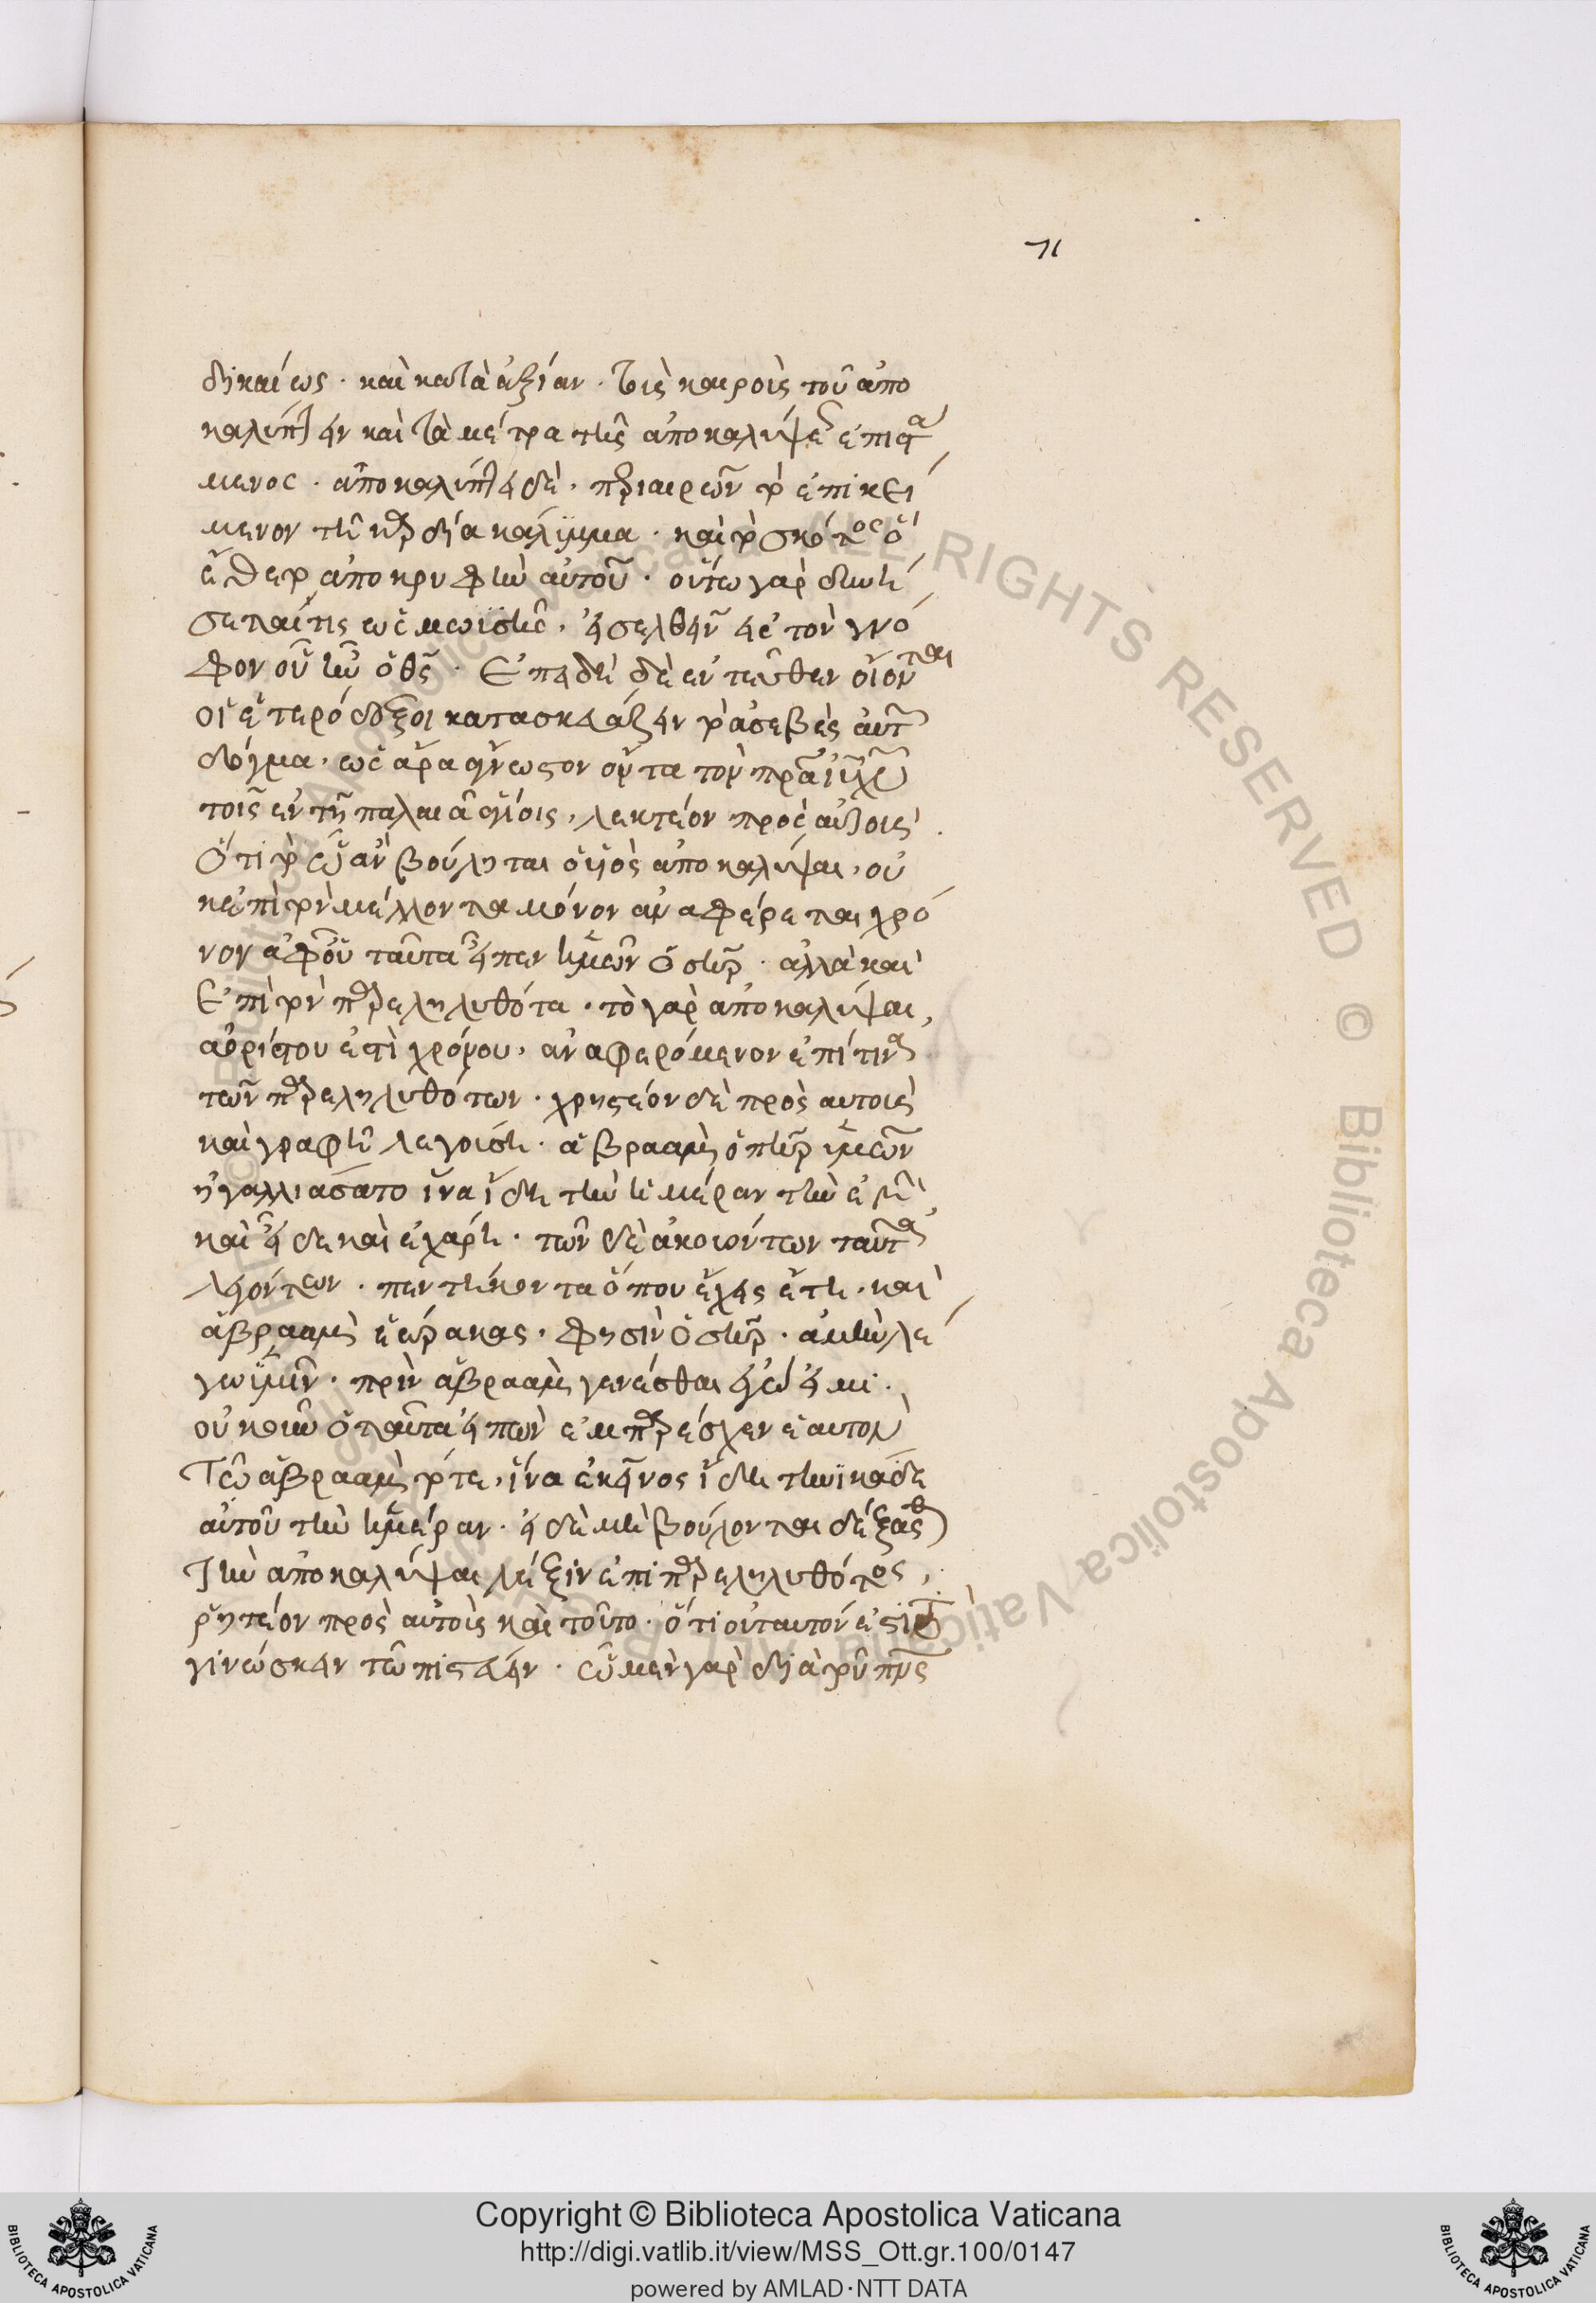 71
δικαίως · καὶ κατὰ ἀξίαν · τοὺς καιροὺς τοῦ ἀπο
καλύπτειν καὶ τὰ μέτρα τῆς ἀποκαλύψε ἐπιστα
μενος · ἀποκαλύπτει δὲ · περιαιρῶν τὸ ἐπικεί
μενον τῇ καρδία κάλυμμα · καὶ τὸ σκότος ὃ
ἔθετο ἀποκρυφὴν αὐτοῦ · οὕτω γὰρ δυνή
σεταί τις ὡς μωϋσῆς · εἰσελθεῖν εἰς τὸν γνό
φον οὗ ἦν ὁ θς · Ἐπειδὴ δὲ ἐντεῦθεν οἴονται
οἱ ἑτερόδοξοι κατασκευάζειν τὸ ἀσεβὲς αὐτῶν
δόγμα · ὡς ἄρα ἄγνωστον ὄντα τὸν πρα ιυ χυ
τοῖς ἐν τῇ παλαιᾷ ἁγίοις, λεκτέον πρὸς αὐτοὺς
Ὅτι τὸ ᾧ ἂν βούληται ὁ υἱὸς ἀποκαλύψαι, οὐ
κ ἐπὶ τὸν μέλλοντα μόνον ἀναφέρεται χρό
νον ἀφ' οὗ ταῦτα εἶπεν ἡμῶν ὁ σηρ · ἀλλὰ καὶ
Ἐπὶ τὸν παρεληλυθότα · τὸ γὰρ ἀποκαλύψαι,
ἀορίστου ἐστὶ χρόνου, ἀναφερόμενον ἐπί τινα
τῶν παρεληλυθότων · χρηστέον δὲ πρὸς αυτοὺς
καὶ γραφῇ λεγούσῃ · ἀβραὰμ ὁ πηρ ὑμῶν
ἠγαλλιάσατο ἵνα ἴδῃ τὴν ἡμέραν τὴν ἐμὴ
καὶ εἶδε καὶ ἐχάρη · τῶν δὲ ἀκουόντων ταῦτα
λεγόντων · πεντήκοντα ὅπου ἔχεις ἔτη · καὶ
ἀβραὰμ ἑώρακας · φησὶν ὁ σηρ · ἀμὴν λέ
γω ὑμῖν · πρὶν ἀβραὰμ γενέσθαι ἐγώ εἰμι ·
οὐκοῦν ὁ ταῦτα εἰπὼν ἐμπαρέσχεν ἑαυτὸν
Τῷ ἀβραὰμ τότε, ἵνα ἐκεῖνος ἴδῃ τὴν καὶ δε
αὐτοῦ τὴν ἡμέραν · εἰ δὲ μὴ βούλονται δέξασθ
Τὴν ἀποκαλύψαι λέξιν ἐπὶ παρεληλυθότος,
ῥητέον πρὸς αὐτοὺς καὶ τοῦτο · ὅτι οὐ ταυτόν ἐστι τὸ
γινώσκειν τῷ πιστεύειν · ᾧ μὲν γὰρ διὰ τοῦ πνς
Copyright © Biblioteca Apostolica Vaticana
http://digi.vatlib.it/view/MSS_Ott.gr.100/0147
powered by AMLAD·NTT DATA